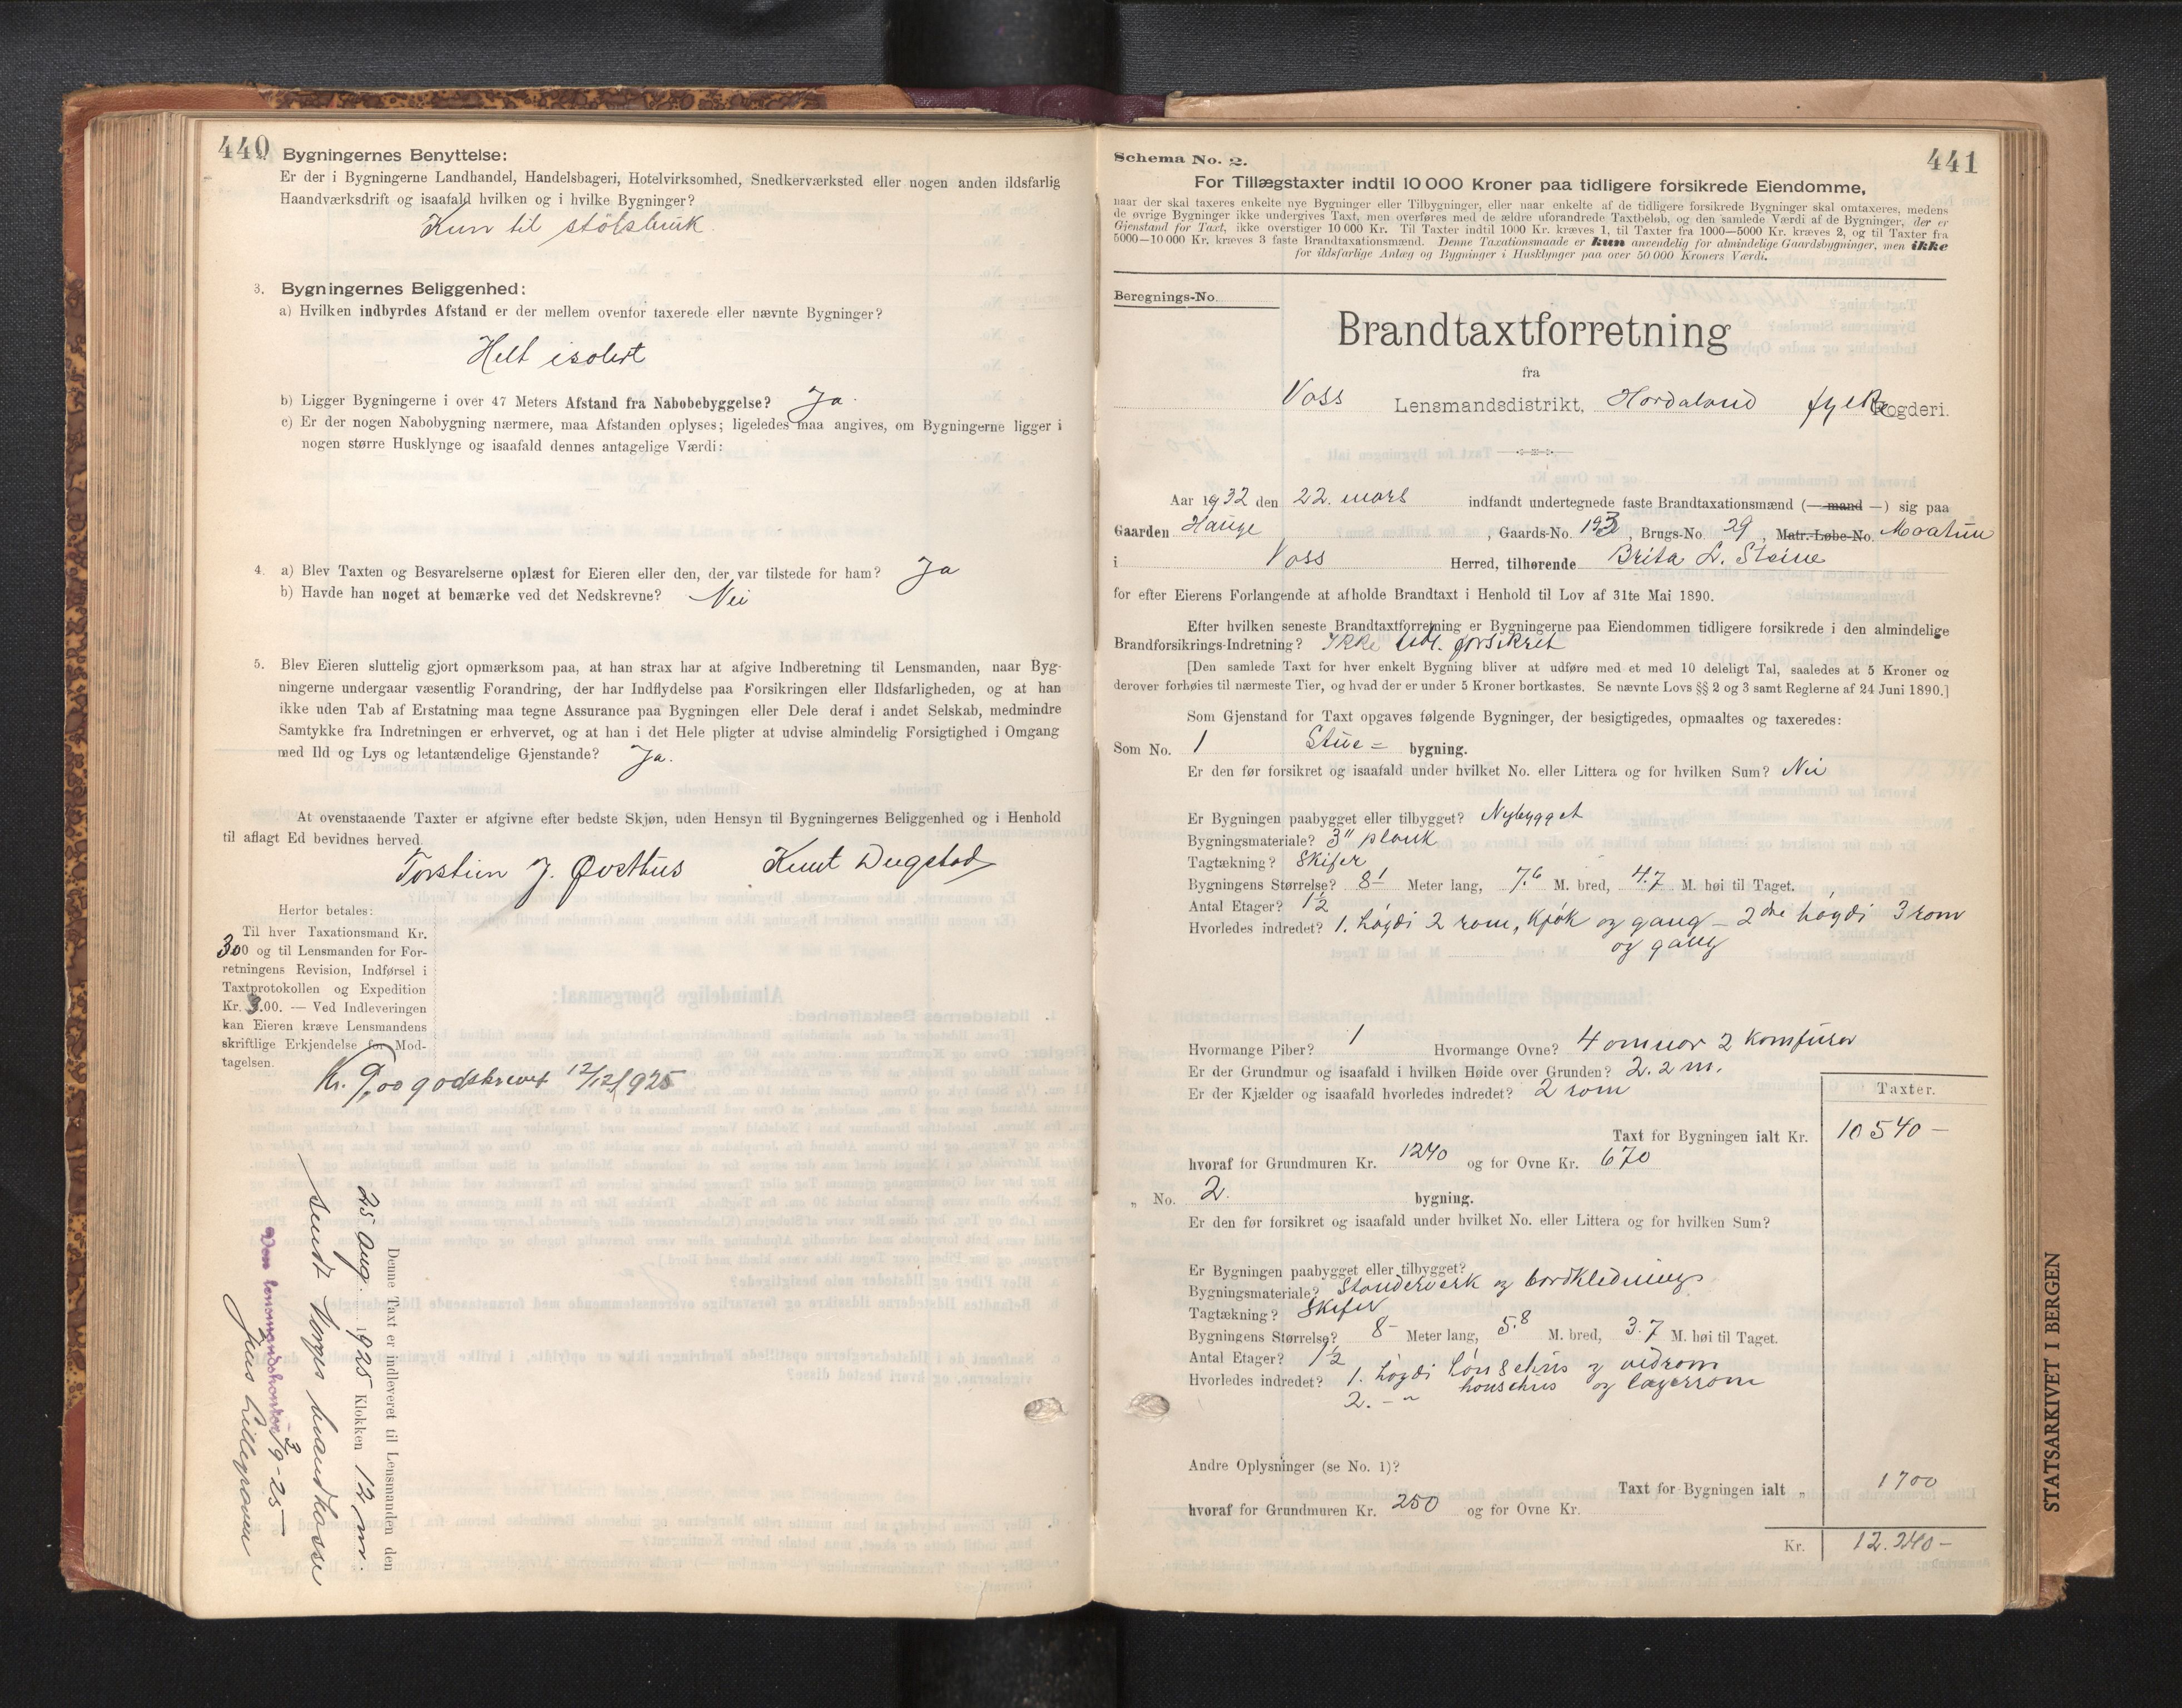 440
Bygningernes Benyttelse:
Er der i Bygningerne Landhandel, Handelsbageri, Hotelvirksomhed, Snedkerværksted eller nogen anden ildsfarlig
Haandværksdrift og isaafald hvilken og i hvilke Bygninger?
Kun til stölsbruk.
3. Bygningernes Beliggenhed:
a) Hvilken indbyrdes Afstand er der mellem ovenfor taxerede eller nævnte Bygninger?
Helt isolert
b) Ligger Bygningerne i over 47 Meters Afstand fra Nabobebyggelse? Ja.
c) Er der nogen Nabobygning nærmere, maa Afstanden oplyses; ligeledes maa angives, om Bygningerne ligger i
nogen større Husklynge og isaafald dennes antagelige Værdi:
4. a) Blev Taxten og Besvarelserne oplæst for Eieren eller den, der var tilstede for ham? Ja
b) Havde han noget at bemærke ved det Nedskrevne? Nei
5. Blev Eieren sluttelig gjort opmærksom paa, at han strax har at afgive Indberetning til Lensmanden, naar Byg-
ningerne undergaar væsentlig Forandring, der har Indflydelse paa Forsikringen eller Ildsfarligheden, og at han
ikke uden Tab af Erstatning maa tegne Assurance paa Bygningen eller Dele deraf i andet Selskab, medmindre
Samtykke fra Indretningen er erhvervet, og at han i det Hele pligter at udvise almindelig Forsigtighed i Omgang
med Ild og Lys og letantændelige Gjenstande? Ja.
At ovenstaaende Taxter er afgivne efter bedste Skjøn, uden Hensyn til Bygningernes Beliggenhed og i Henhold
til aflagt Ed bevidnes herved.
Torstein J. Østhus Knut Dugstad
Herfor betales:
Til hver Taxationsmand Kr.
3.00 og til Lensmanden for For-
retningens Revision, Indførsel i
Taxtprotokollen og Expedition
Kr. 3.00. — Ved Indleveringen
kan Eieren kræve Lensmandens
skriftlige Erkjendelse for Mod-
tagelsen.
Kr. 9,00 godskrevet 12/12 1925
Denne Taxt er indleveret til Lensmanden den
25 Aug. 1925 Klokken 12 m.
sendt Norges brandkasse
Voss lensmandskontor 3/9-25 —
Lillegraven
Schema No. 2.
441
For Tillægstaxter indtil 10 000 Kroner paa tidligere forsikrede Eiendomme,
naar der skal taxeres enkelte nye Bygninger eller Tilbygninger, eller naar enkelte af de tidligere forsikrede Bygninger skal omtaxeres, medens
de øvrige Bygninger ikke undergives Taxt, men overføres med de ældre uforandrede Taxtbeløb, og den samlede Værdi af de Bygninger, der er
Gjenstand for Taxt, ikke overstiger 10 000 Kr. Til Taxter indtil 1000 Kr. kræves 1, til Taxter fra 1000—5000 Kr. kræves 2, og til Taxter fra
5000—10 000 Kr. kræves 3 faste Brandtaxationsmænd. Denne Taxationsmaade er kun anvendelig for almindelige Gaardsbygninger, men ikke
for ildsfarlige Anlæg og Bygninger i Husklynger paa over 50 000 Kroners Værdi.
Beregnings-No.
Brandtaxtforretning
fra
Voss Lensmandsdistrikt, Hordaland fylke Fogderi.
Aar 1932 den 22. mars indfandt undertegnede faste Brandtaxationsmænd (— mand —) sig paa
Gaarden Hauge , Gaards-No. 193, Brugs-No. 29, Matr.-Løbe-No. Moatun
i Voss Herred, tilhørende Brita L. Steine
for efter Eierens Forlangende at afholde Brandtaxt i Henhold til Lov af 31te Mai 1890.
Efter hvilken seneste Brandtaxtforretning er Bygningerne paa Eiendommen tidligere forsikrede i den almindelige
Brandforsikrings-Indretning? Ikke tidl. forsikret
[Den samlede Taxt for hver enkelt Bygning bliver at udføre med et med 10 deleligt Tal, saaledes at 5 Kroner og
derover forhøies til nærmeste Tier, og hvad der er under 5 Kroner bortkastes. Se nævnte Lovs §§ 2 og 3 samt Reglerne af 24 Juni 1890.]
Som Gjenstand for Taxt opgaves følgende Bygninger, der besigtigedes, opmaaltes og taxeredes:
Som No. 1 Stue- bygning.
Er den før forsikret og isaafald under hvilket No. eller Littera og for hvilken Sum? Nei
Er Bygningen paabygget eller tilbygget? Nybygget
Bygningsmateriale? 3" plank
Tagtækning? Skifer
Bygningens Størrelse? 8.1 Meter lang, 7.6 M. bred, 4.7 M. høi til Taget.
Antal Etager? 1½
Hvorledes indredet? 1. høgdi 2 rom, kjøk og gang — 2dre høgdi 3 rom
og gang
Hvormange Piber? 1 Hvormange Ovne? 4 omnar 2 komfurar
Er der Grundmur og isaafald i hvilken Høide over Grunden? 2.2 m.
Er der Kjælder og isaafald hvorledes indredet? 2 rom
Taxter.
Taxt for Bygningen ialt Kr. 10 540 —
hvoraf for Grundmuren Kr. 1240 og for Ovne Kr. 670
„ No. 2. bygning.
Er den før forsikret og isaafald under hvilket No. eller Littera og for hvilken Sum?
Er Bygningen paabygget eller tilbygget?
Bygningsmateriale? Standerverk og bordkledning
Tagtækning? Skifer
Bygningens Størrelse? 8 - Meter lang, 5.8 M. bred, 3.7 M. høi til Taget.
Antal Etager? 1½
Hvorledes indredet? 1. høgdi hønsehus og vedrom
2. - " hønsehus og lagerrom
Andre Oplysninger (se No. 1)?
Taxt for Bygningen ialt „ 1700
hvoraf for Grundmuren Kr. 250 og for Ovne Kr.
Kr. 12.240 —
STATSARKIVET I BERGEN